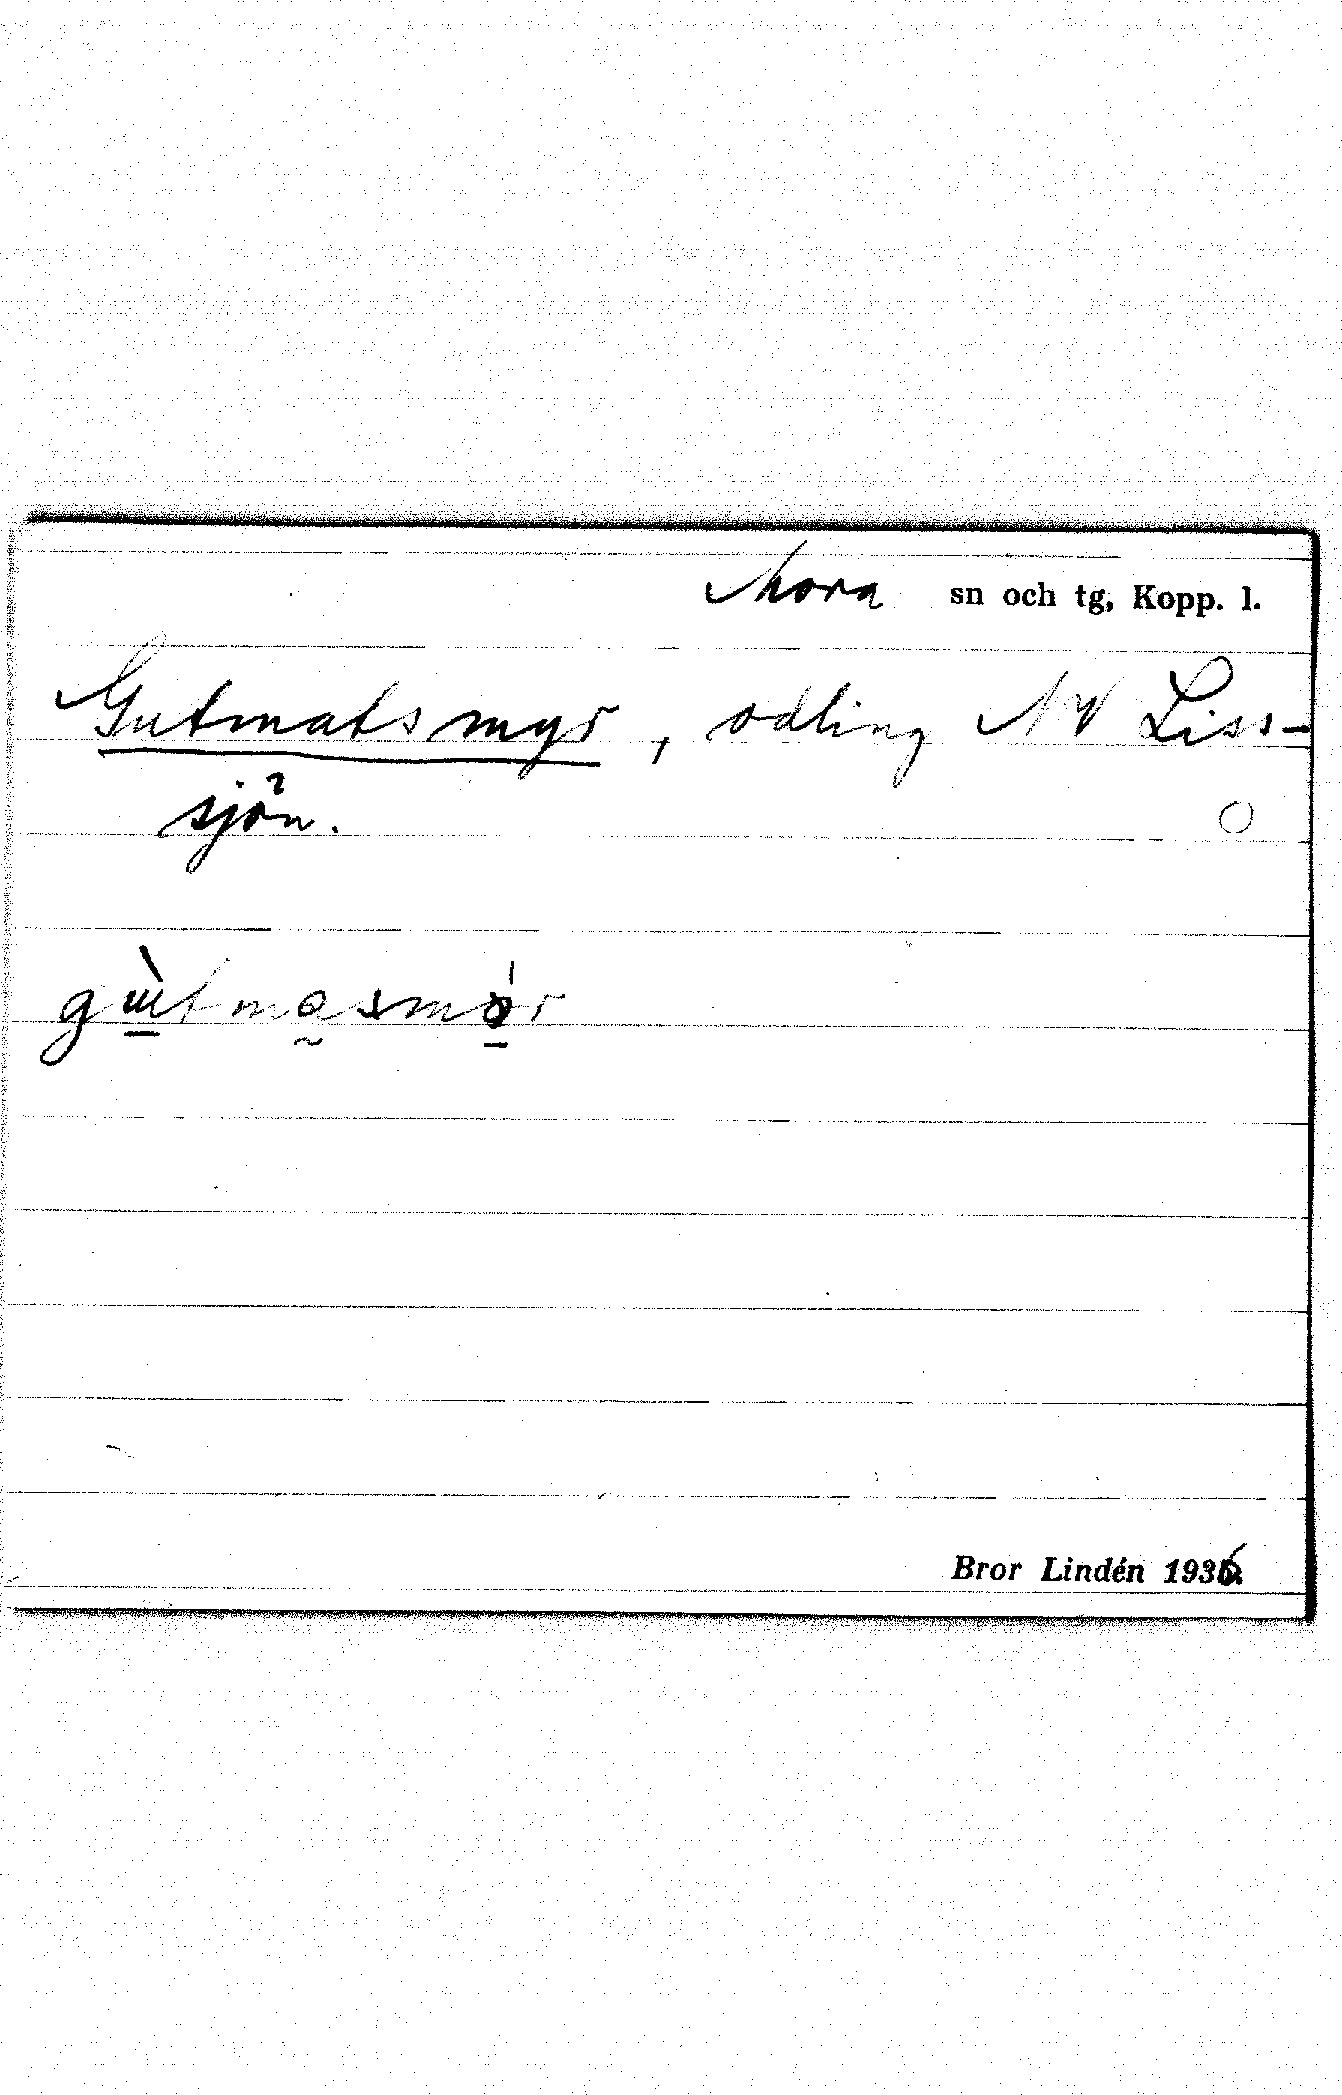 Mora sn och tg, Kopp. l.
Gutmatsmyr, odling NV Liss-
sjön.
gɯ̱̀tma̰smø̱̍r
Bror Lindén 1936